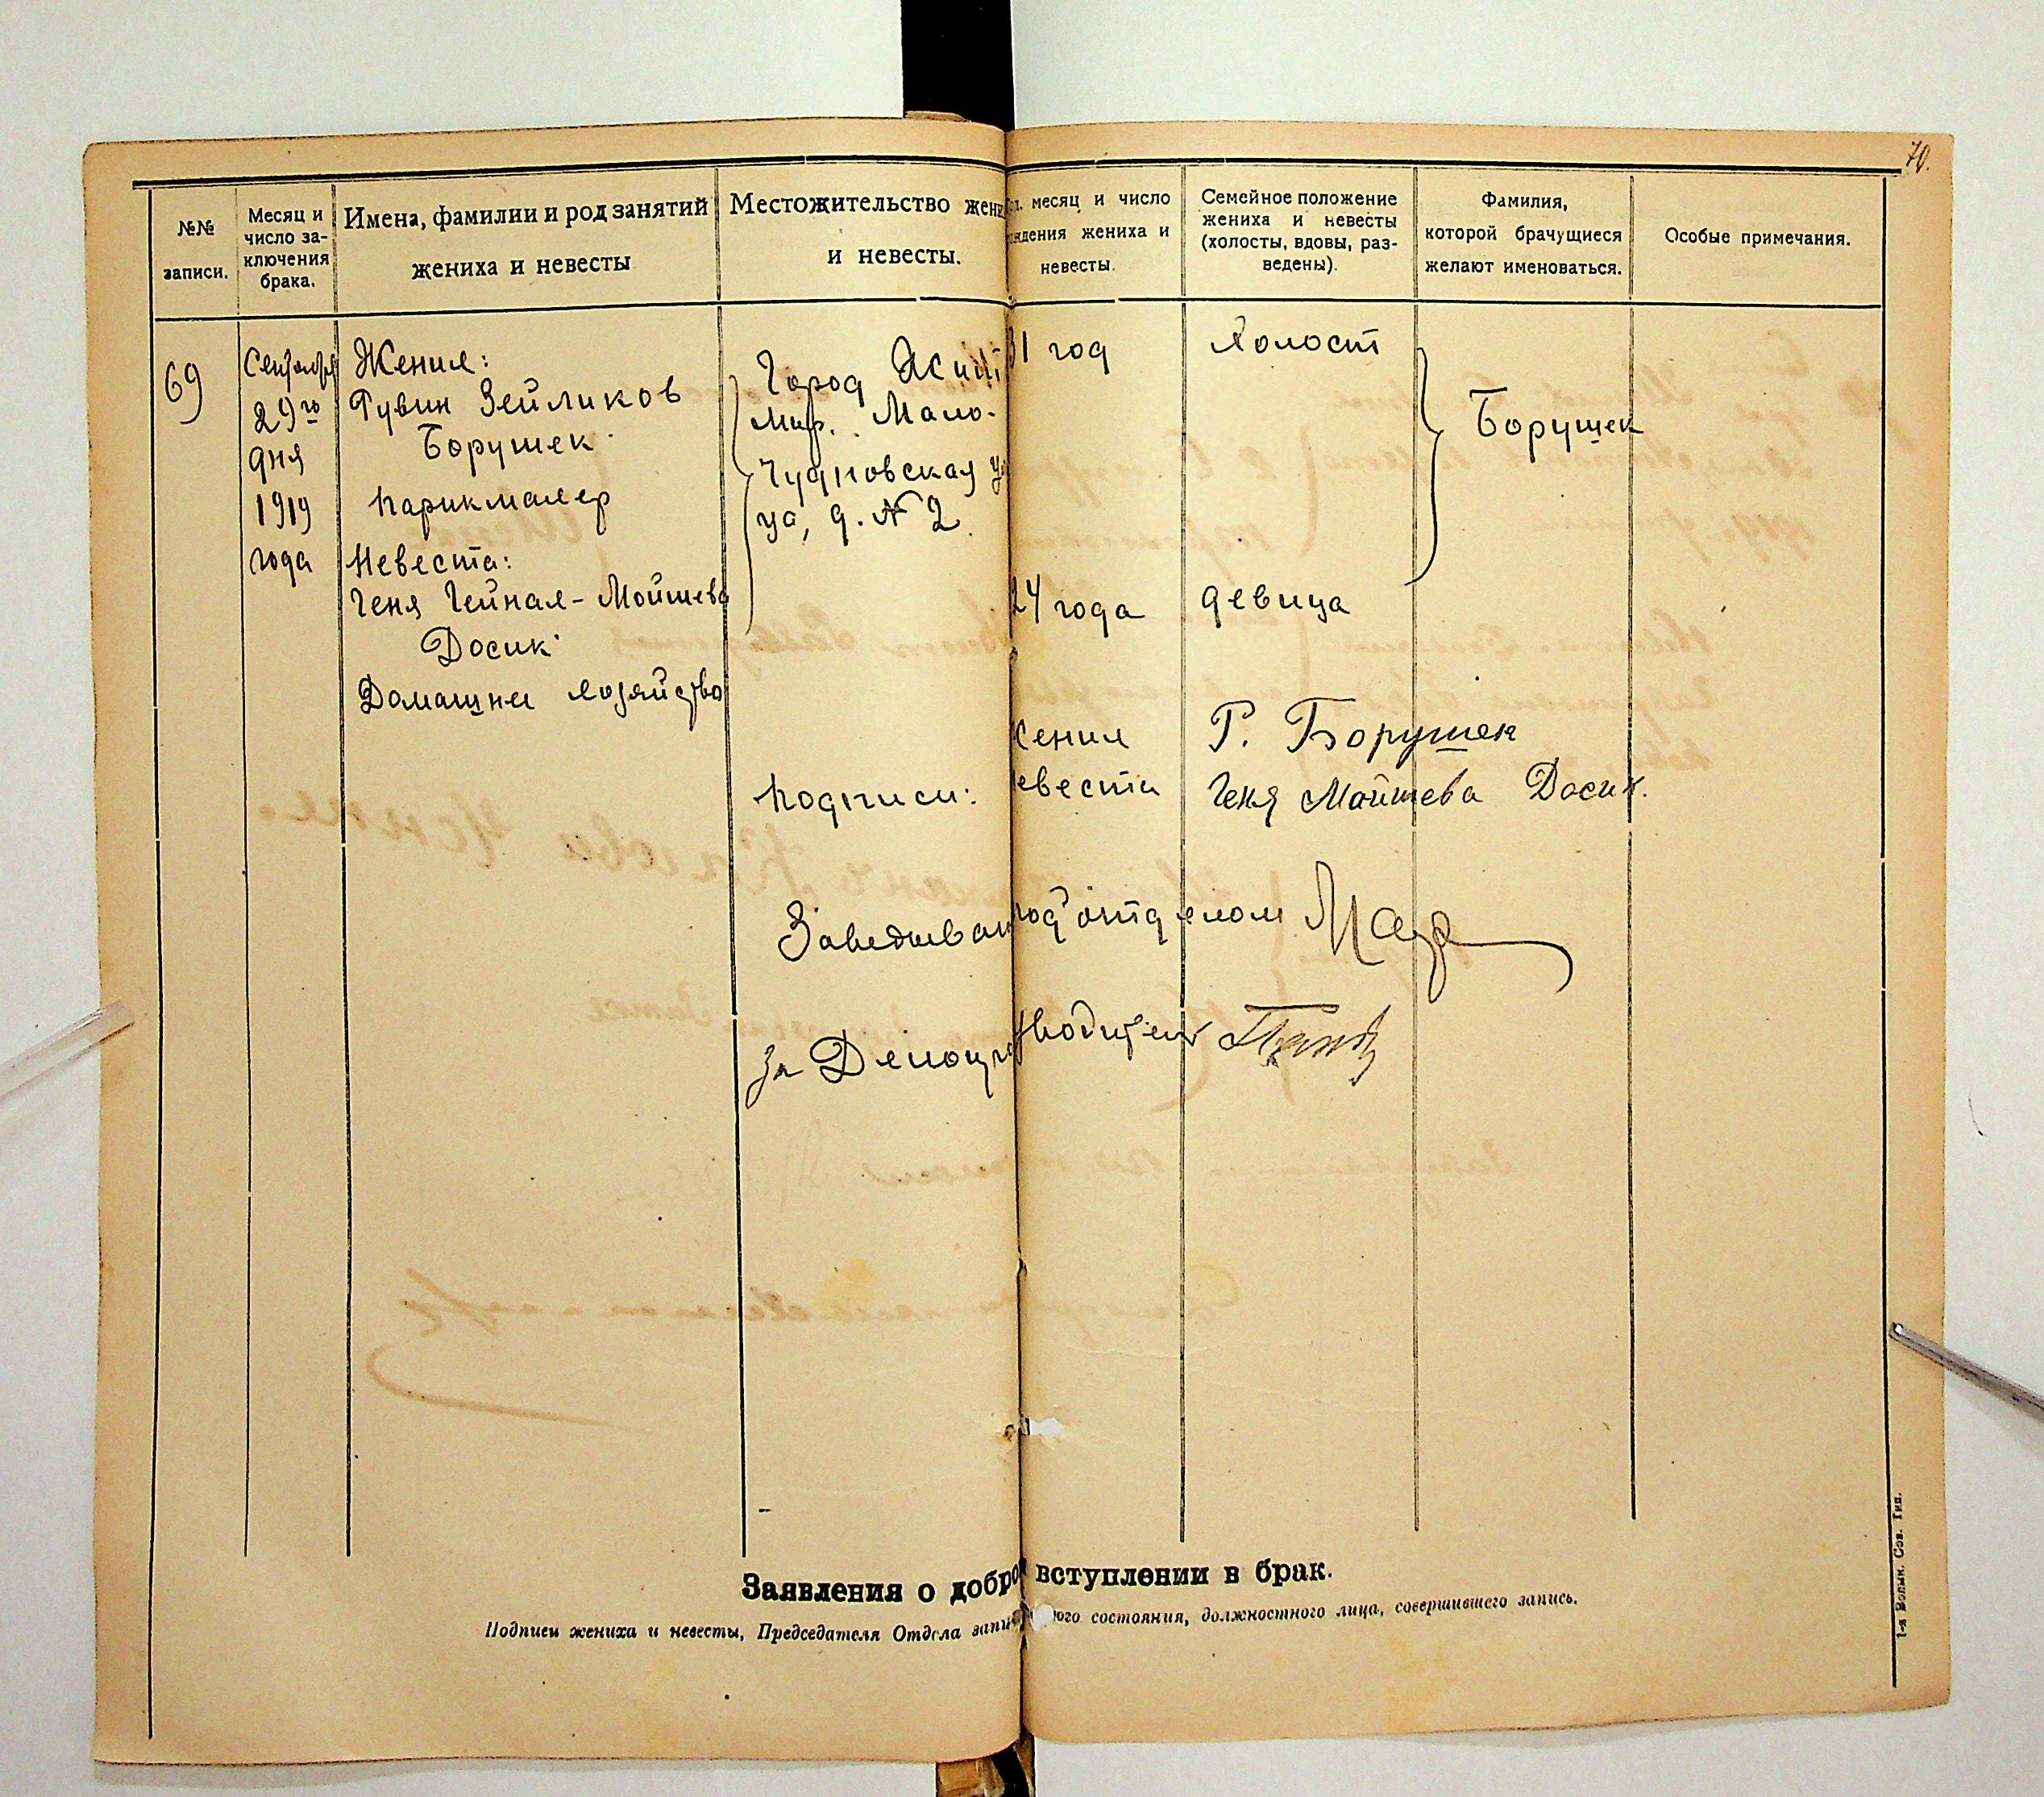 70.
№№
записи.
Месяц и
число за-
ключения
брака.
Имена, фамилии и род занятий
жениха и невесты
Местожительство жени
и невесты.
месяц и число
ждения жениха и
невесты.
Семейное положение
жениха и невесты
(холосты, вдовы, раз-
ведены).
Фамилия,
которой брачущиеся
желают именоваться.
Особые примечания.
69
Сентября
29го
дня
1919
года
Жених:
Рувин Зейликов
Борушек
Парикмахер
Невеста:
Геня Мойшева
Досик
Домашнее хозяйство
Город Жит
мир. Мало-
Чудновская ул
ца, д. № 2
31 год
24 года
Холост
девица
Борушек
Подписи:
жених Р. Борушек
евеста Геня Мойшева Досик.
Заведыван под'отделом
За Делопроизводителя
Заявления о добро вступлении в брак.
Подписи жениха и невесты, Председателя Отдела запи ого состояния, должностного лица, совершившего запись.
1-я Волын. Сов. Тип.